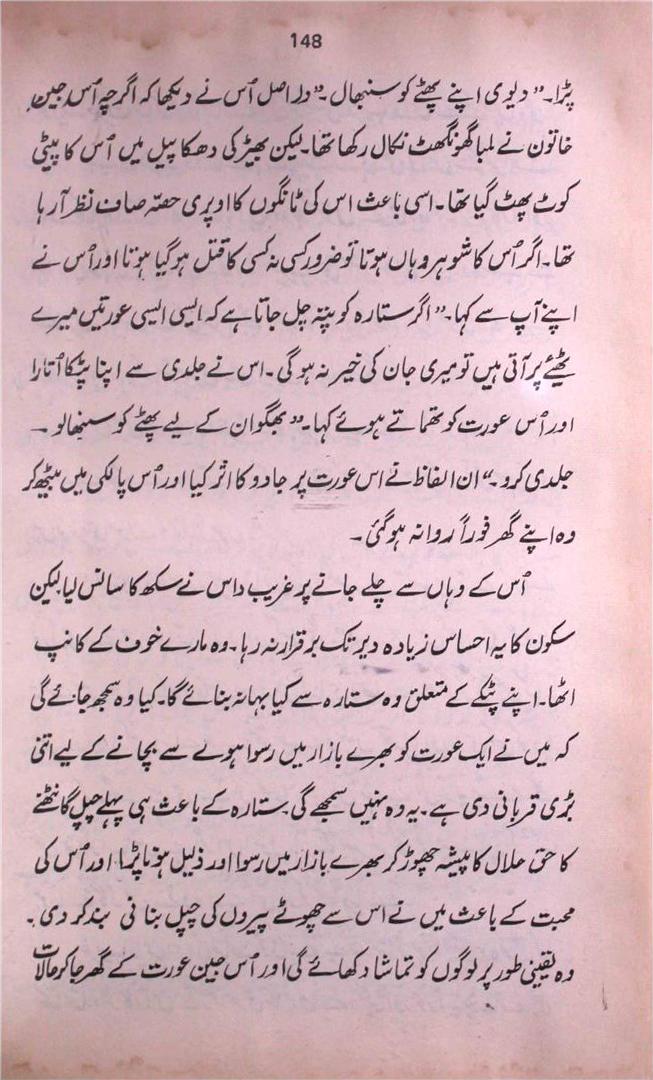 148
پڑا۔ ” دیوی اپنے پھٹے کو سنبھال ۔“ دراصل اُس نے دیکھا کہ اگرچہ اُس جین
خاتون نے لمبا گھونگھٹ نکال رکھا تھا۔ لیکن بھیڑ کی دھکا پیل میں اُس کا پیٹی
کوٹ پھٹ گیا تھا۔ اسی باعث اس کی ٹانگوں کا اوپری حصّہ صاف نظر آ رہا
تھا۔ اگر اُس کا شوہر وہاں ہوتا تو ضرور کسی نہ کسی کا قتل ہو گیا ہوتا اور اُس نے
اپنے آپ سے کہا۔ ” اگر ستارہ کو پتہ چل جاتا ہے کہ ایسی ایسی عورتیں میرے
ٹھیئے پر آتی ہیں تو میری جان کی خیر نہ ہو گی ۔ اس نے جلدی سے اپنا پٹکا اُتارا
اور اُس عورت کو تھماتے ہوئے کہا۔ ” بھگوان کے لیے پھٹے کو سنبھالو ۔
جلدی کرو ۔“ ان الفاظ نے اس عورت پر جادو کا اثر کیا اور اُس پالکی میں بیٹھ کر
وہ اپنے گھر فوراً روانہ ہو گئی ۔
اُس کے وہاں سے چلے جانے پر غریب داس نے سکھ کا سانس لیا لیکن
سکون کا یہ احساس زیادہ دیر تک برقرار نہ رہا۔ وہ مارے خوف کے کانپ
اٹھا۔ اپنے پٹکے کے متعلق وہ ستارہ سے کیا بہانہ بنائے گا۔ کیا وہ سمجھ جائے گی
کہ میں نے ایک عورت کو بھرے بازار میں رسوا ہونے سے بچانے کے لیے اتنی
بڑی قربانی دی ہے ۔ یہ وہ نہیں سمجھے گی ۔ ستارہ کے باعث ہی پہلے چپل گانٹھنے
کا حق حلال کا پیشہ چھوڑ کر بھرے بازار میں رسوا اور ذلیل ہونا پڑا اور اُس کی
محبت کے باعث میں نے اس سے چھوٹے پیروں کی چپل بنانی بند کر دی ۔
وہ یقینی طور پر لوگوں کو تماشا دکھائے گی اور اُس جین عورت کے گھر جا کر حالات